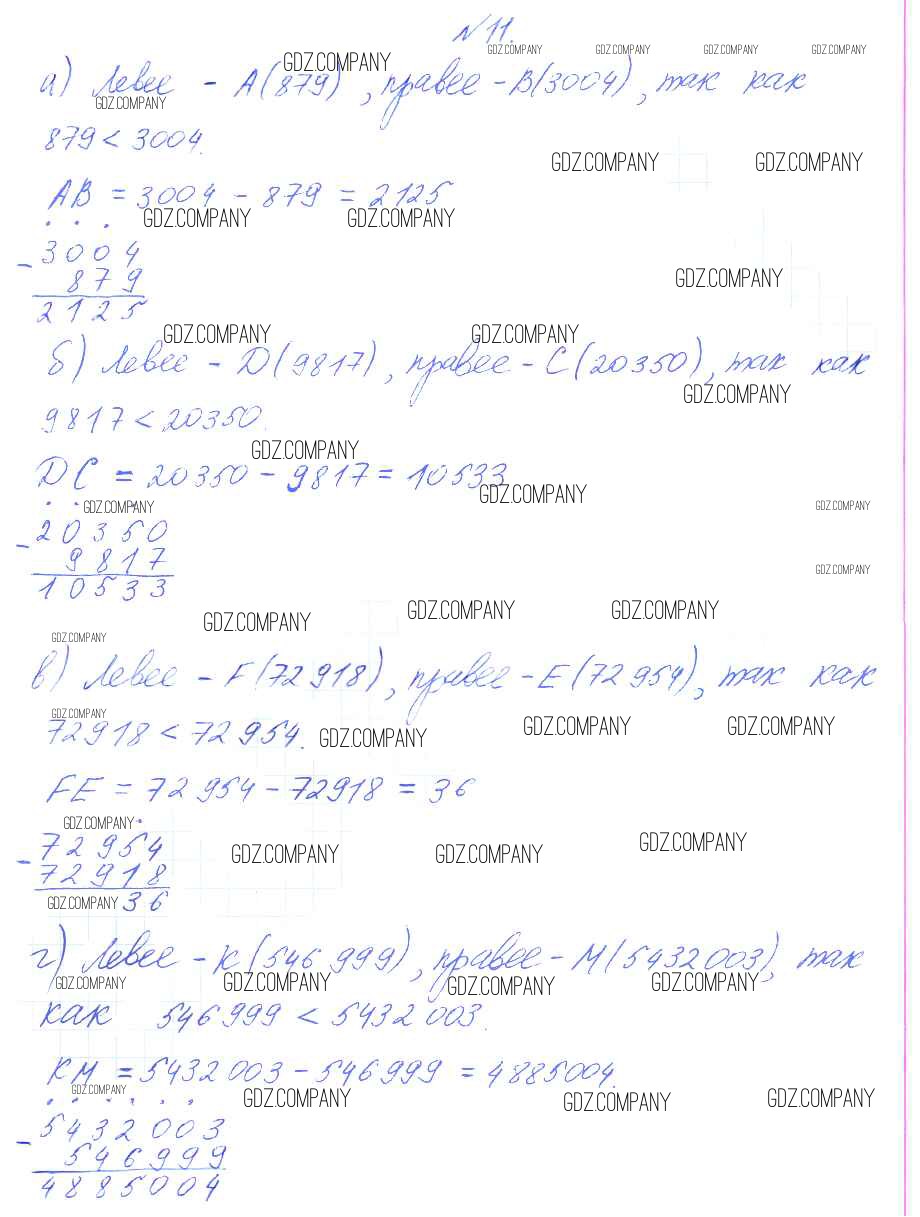 № 11.
GDZ.COMPANY GDZ.COMPANY GDZ.COMPANY GDZ.COMPANY GDZ.COMPANY
а) Левее - А(879), правее - В(3004), так как
GDZ.COMPANY
879 < 3004.
GDZ.COMPANY GDZ.COMPANY
АВ = 3004 - 879 = 2125
GDZ.COMPANY GDZ.COMPANY
- 3004
879
GDZ.COMPANY
2125
GDZ.COMPANY GDZ.COMPANY
б) Левее - D(9817), правее - С(20350), так как
GDZ.COMPANY
9817 < 20350.
GDZ.COMPANY
DC = 20350 - 9817 = 10533
GDZ.COMPANY
GDZ.COMPANY GDZ.COMPANY
- 20350
9817
GDZ.COMPANY
10533
GDZ.COMPANY GDZ.COMPANY GDZ.COMPANY
GDZ.COMPANY
в) Левее - F(72 918), правее - E(72 954), так как
GDZ.COMPANY
72918 < 72 954.
GDZ.COMPANY GDZ.COMPANY GDZ.COMPANY
FE = 72 954 - 72918 = 36
GDZ.COMPANY
- 72954
GDZ.COMPANY GDZ.COMPANY GDZ.COMPANY
72918
GDZ.COMPANY 36
г) Левее - К(546 999), правее - М(5432 003), так
GDZ.COMPANY GDZ.COMPANY GDZ.COMPANY GDZ.COMPANY
как 546 999 < 5432 003.
КМ = 5432 003 - 546 999 = 4885004.
GDZ.COMPANY GDZ.COMPANY GDZ.COMPANY GDZ.COMPANY
- 5432003
546999
4885004